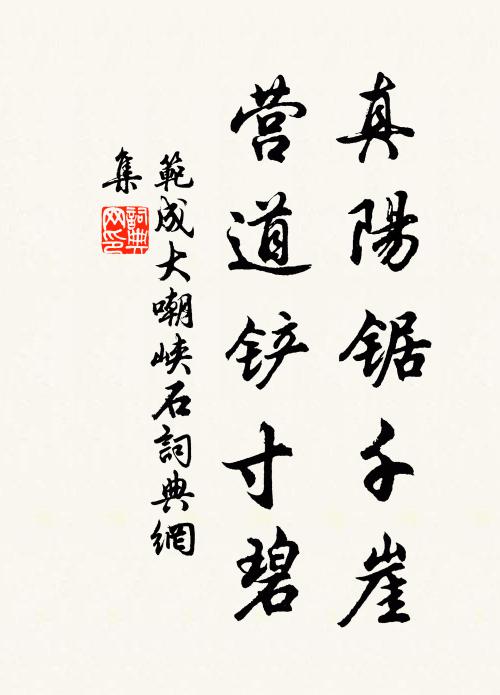 真陽锯千崖
营道铲寸碧
範成大嘲峽石詞典網
集
詞典网印